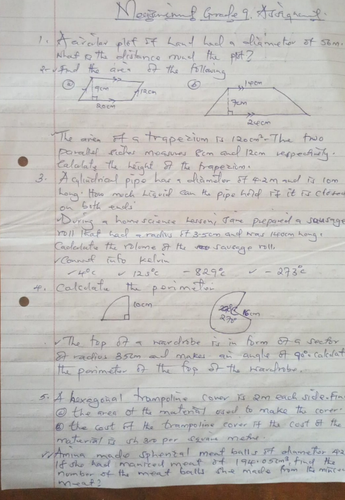 Grade 9 Assignment
1. A circular plot of land had a diameter of 56m.
What is the distance round the plot?
2. Find the area of the following
9cm 12cm
20cm
14cm
7cm
24cm
The area of a trapezium is 120cm². The two
parallel sides measures 8cm and 12cm respectively.
Calculate the height of the trapezium.
3. A cylindrical pipe has a diameter of 4.2m and is 10m
long. How much liquid can the pipe hold if it is closed
on both ends
During a homescience lesson, Jane prepared a sausage
roll that had a radius of 3.5cm and was 140cm long.
Calculate the volume of the sausage roll.
Convert into Kelvin
4°C 123°C -829°C -273°C
4. Calculate the perimeter
10cm
270°
The top of a wardrobe is in form of a sector
of radius 35cm and makes an angle of 90°. Calculate
the perimeter of the top of the wardrobe.
5. A hexagonal trampoline cover is 2m each side. find
the area of the material used to make the cover.
the cost of the trampoline cover if the cost of the
material is sh per square metre.
Amina made spherical meat balls of diameter
If she had manced meat of find the
number of the meat balls she made from the
meat?